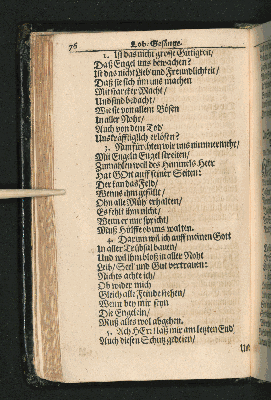 76 Lob-Gesänge.
1. Ist das nicht grosse Gütigkeit/
Daß Engel uns bewachen?
Ist das nicht Lieb und Freundlichkeit/
Daß sie sich üm uns machen
Mit starcker Macht/
Und sind bedacht/
Wie sie von allem Bösen
In aller Noht/
Auch von dem Tod
Uns kräfftiglich erlösen?
3. Nun fürchten wir uns nimmermehr/
Mit Engeln Engel streiten/
Zumahlen weil des Himmels Heer
Hat GOtt auff seiner Seiten:
Der kan das Feld/
Wenns ihm gefällt/
Ohn alle Müh erhalten/
Es fehlt ihm nicht/
Wenn er nur spricht/
Muß Hülffe ob uns walten.
4. Darum wil ich auff meinen Gott
In aller Trübsal bauen/
Und wil ihm bloß in aller Noht
Leib/ Seel und Gut vertrauen:
Nichts achte ich/
Ob wider mich
Gleich alle Feinde stehen/
Wenn bey mir seyn
Die Engelein/
Muß alles wol abgehen.
5. Ach HErr! laß mir am letzten End
Auch diesen Schutz gedeien/